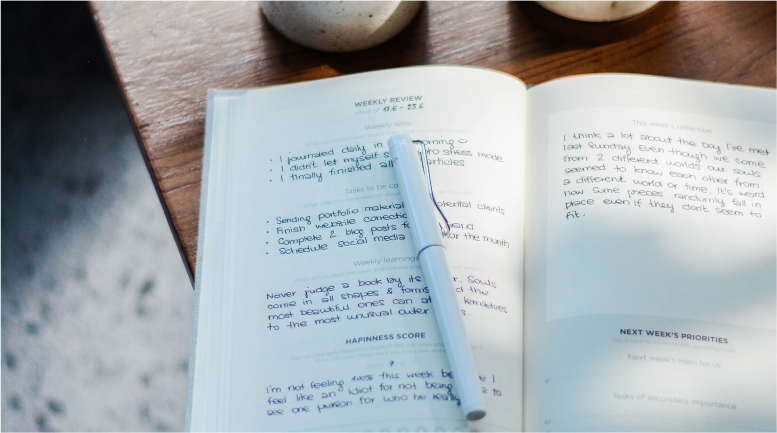 WEEKLY REVIEW
Week of 17.6 - 23.6
Weekly wins
• I journaled daily in morning
• I didn't let myself to stress mode
• I finally finished all articles
Tasks to be
• Sending portfolio material potential clients
• Finish website
• Complete 2 blog posts
• Schedule social media for the month
Weekly learnings
Never judge a book by its Souls
come in all shapes & forms the
most beautiful ones can themselves
to the most unusual
HAPINNESS SCORE
7
I'm not feeling 100% this week I
feel like an idiot for not being to
see one person for who he really
This week's reflection
I think a lot about the boy I've met
last Sunday. Even though we come
from 2 different worlds our souls
seemed to know each other from
a different world or time. It's weird
how some pieces randomly fall in
place even if they don't seem to
fit.
NEXT WEEK'S PRIORITIES
Next week's main focus
Tasks of secondary importance